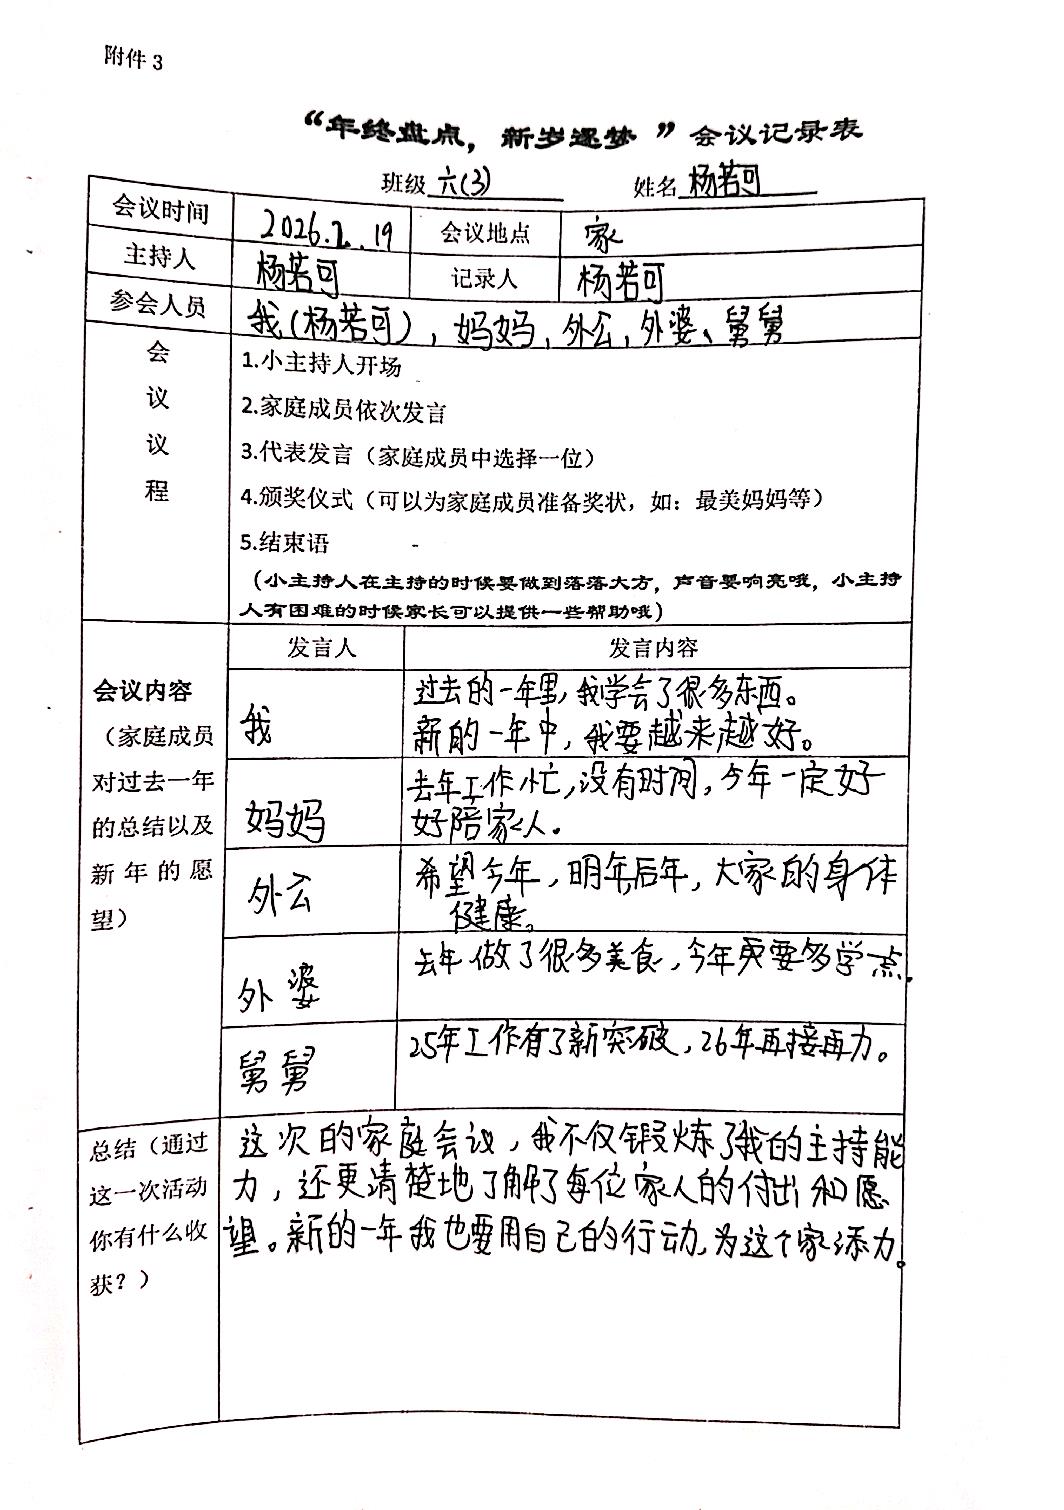 附件 3
“年终盘点，新岁逐梦 ”会议记录表
班级 六(3) 姓名 杨若可
会议时间 2026.2.19 会议地点 家
主持人 杨若可 记录人 杨若可
参会人员 我(杨若可)，妈妈，外公，外婆、舅舅
会议议程
1.小主持人开场
2.家庭成员依次发言
3.代表发言（家庭成员中选择一位）
4.颁奖仪式（可以为家庭成员准备奖状，如：最美妈妈等）
5.结束语
（小主持人在主持的时候要做到落落大方，声音要响亮哦，小主持
人有困难的时候家长可以提供一些帮助哦）
会议内容
（家庭成员
对过去一年
的总结以及
新年的愿
望）
发言人 发言内容
我
过去的一年里，我学会了很多东西。
新的一年中，我要越来越好。
妈妈
去年工作忙，没有时间，今年一定好
好陪家人。
外公
希望今年，明年，后年，大家的身体
健康。
外婆
去年做了很多美食，今年更要多学一点.
舅舅
25年工作有了新突破，26年再接再力。
总结（通过
这一次活动
你有什么收
获？）
这次的家庭会议，我不仅锻炼了我的主持能
力，还更清楚地了解了每位家人的付出和愿
望。新的一年我也要用自己的行动，为这个家添力。